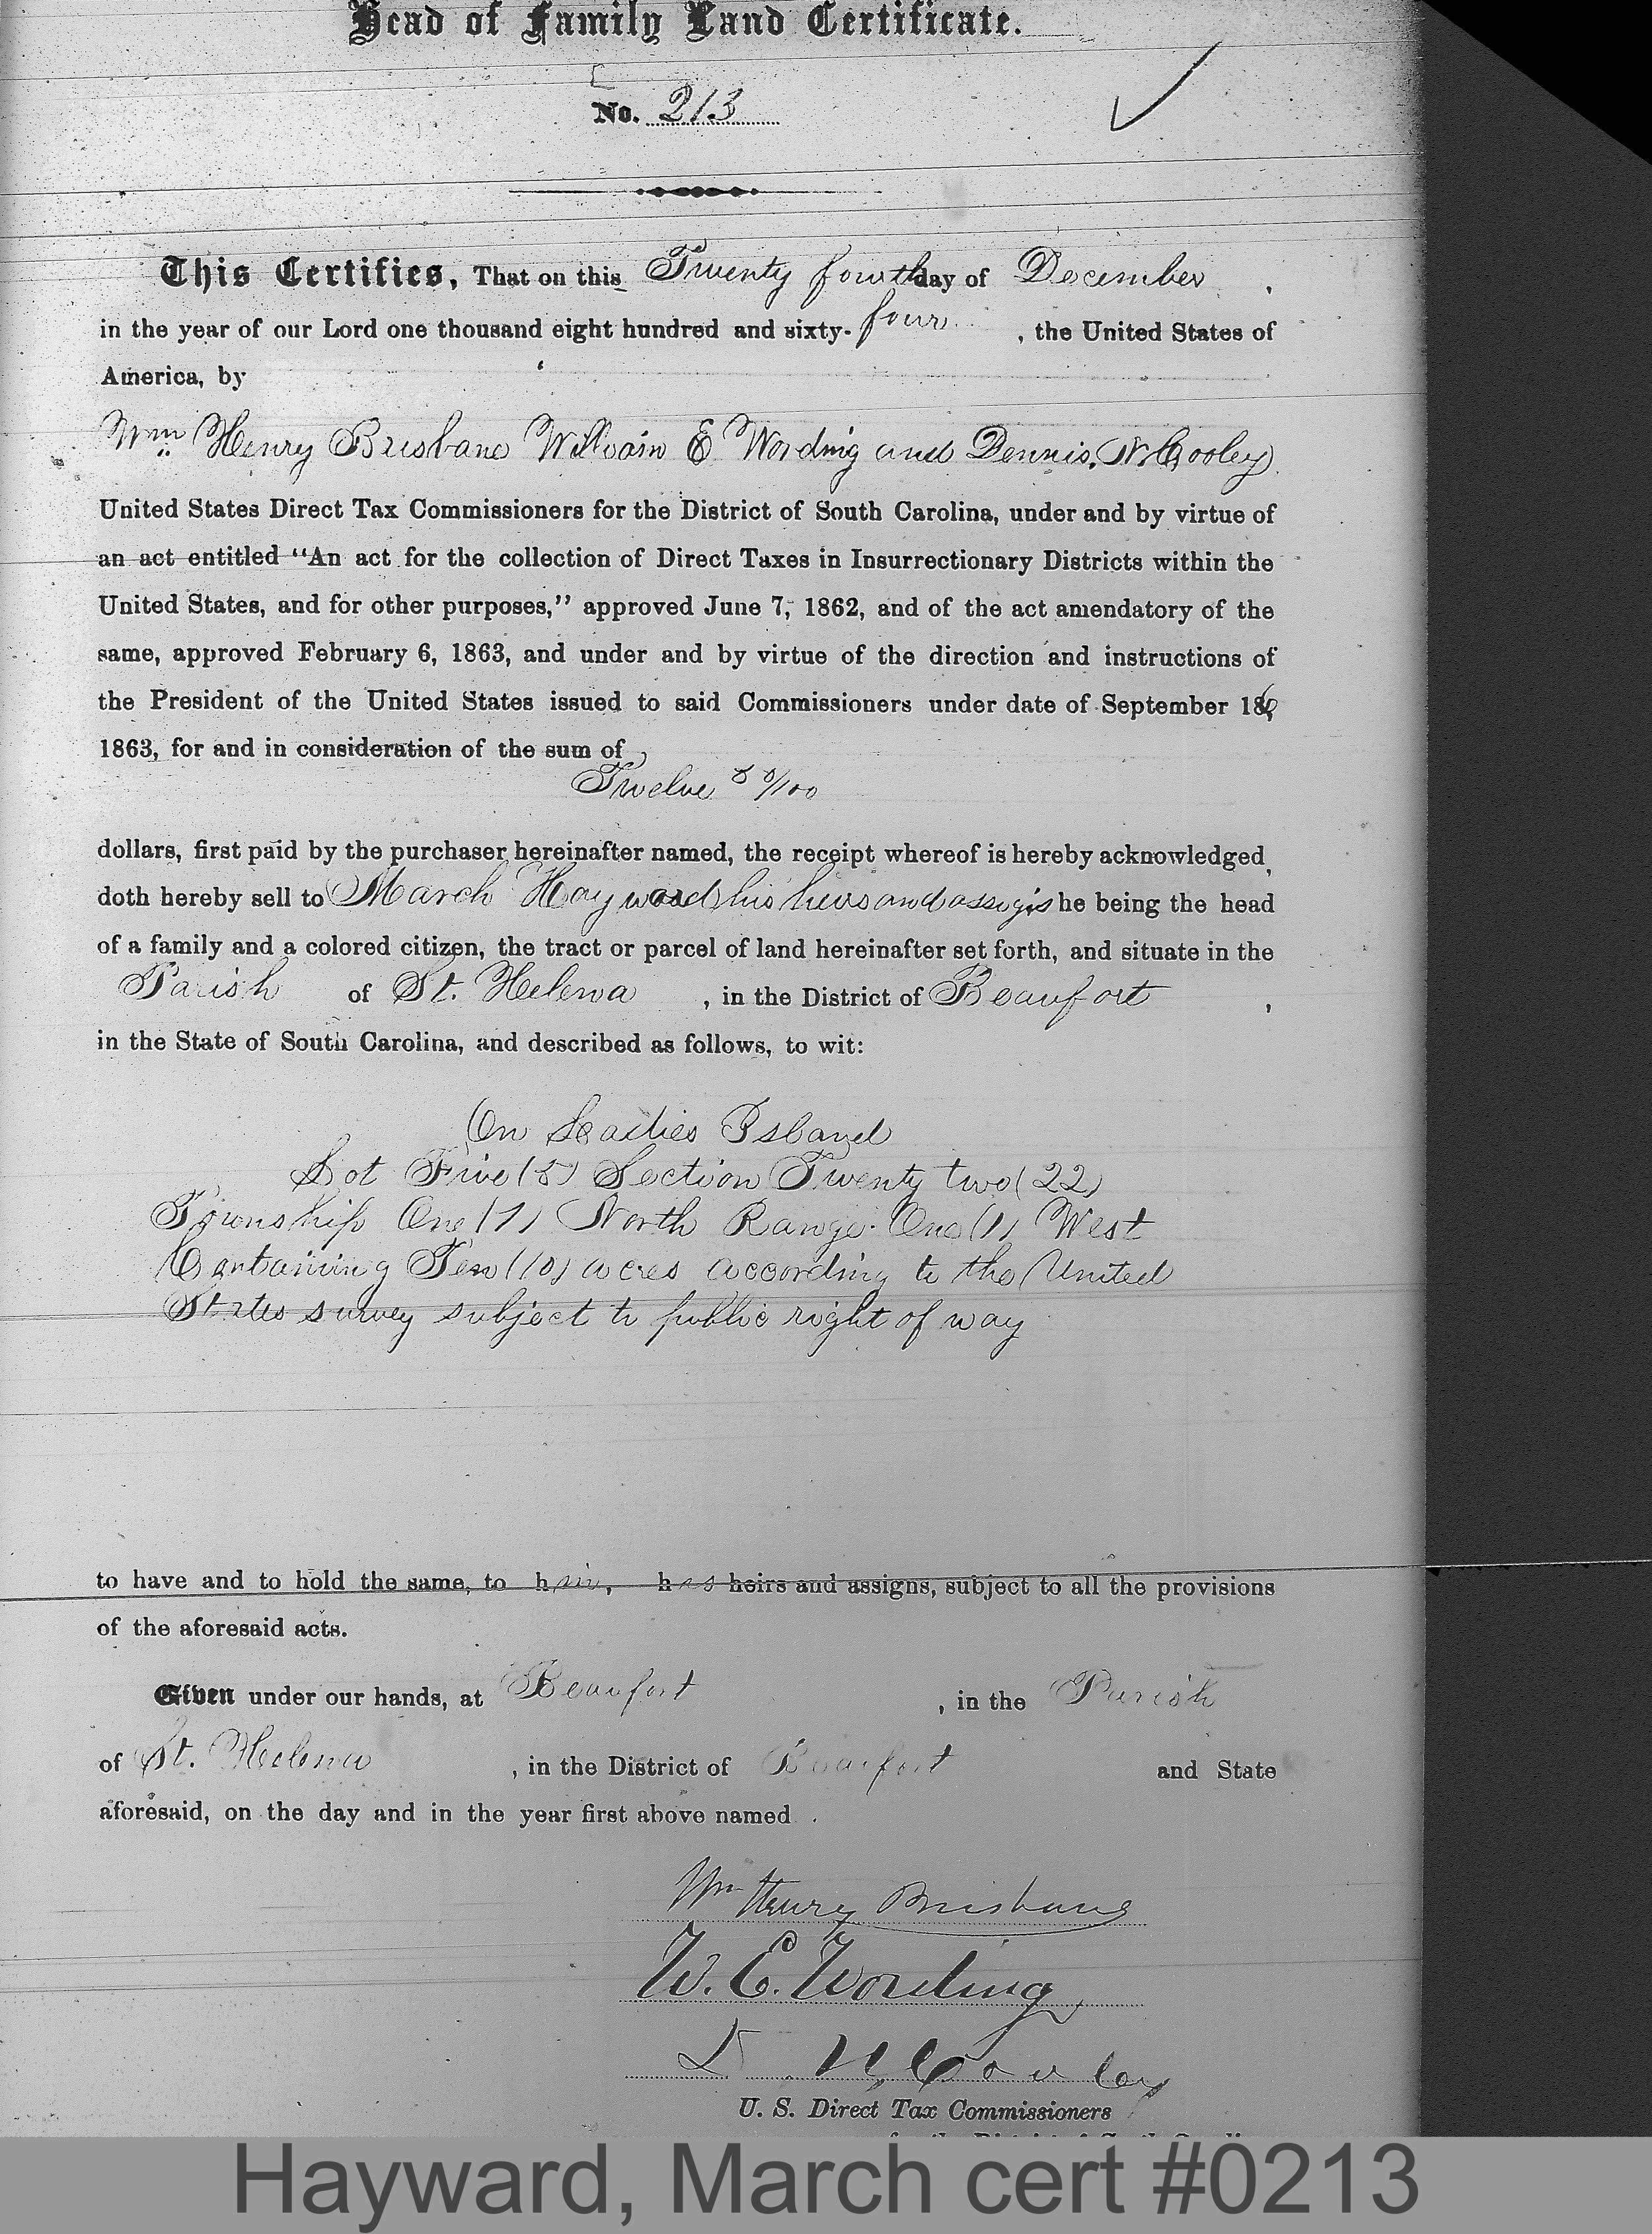 Head of Family Land Certificate.
No. 213
This Certifies, That on this Twenty fourth day of December,
in the year of our Lord one thousand eight hundred and sixty-four, the United States of
America, by
Wm Henry Brisbane William E Wording and Dennis. N. Cooley
United States Direct Tax Commissioners for the District of South Carolina, under and by virtue of
an act entitled "An act for the collection of Direct Taxes in Insurrectionary Districts within the
United States, and for other purposes," approved June 7, 1862, and of the act amendatory of the
same, approved February 6, 1863, and under and by virtue of the direction and instructions of
the President of the United States issued to said Commissioners under date of September 16,
1863, for and in consideration of the sum of
Twelve & 0/100
dollars, first paid by the purchaser hereinafter named, the receipt whereof is hereby acknowledged,
doth hereby sell to March Hayward his heirs and assigns he being the head
of a family and a colored citizen, the tract or parcel of land hereinafter set forth, and situate in the
Parish of St. Helena, in the District of Beaufort,
in the State of South Carolina, and described as follows, to wit:
On Ladies Island
Lot Five (5) Section Twenty two (22)
Township One (1) North Range One (1) West
Containing Ten (10) acres according to the United
States survey subject to public right of way
to have and to hold the same, to him, his heirs and assigns, subject to all the provisions
of the aforesaid acts.
Given under our hands, at Beaufort, in the Parish
of St. Helena, in the District of Beaufort and State
aforesaid, on the day and in the year first above named.
Wm Henry Brisbane
W. E. Wording
D. N. Cooley
U. S. Direct Tax Commissioners
Hayward, March cert #0213